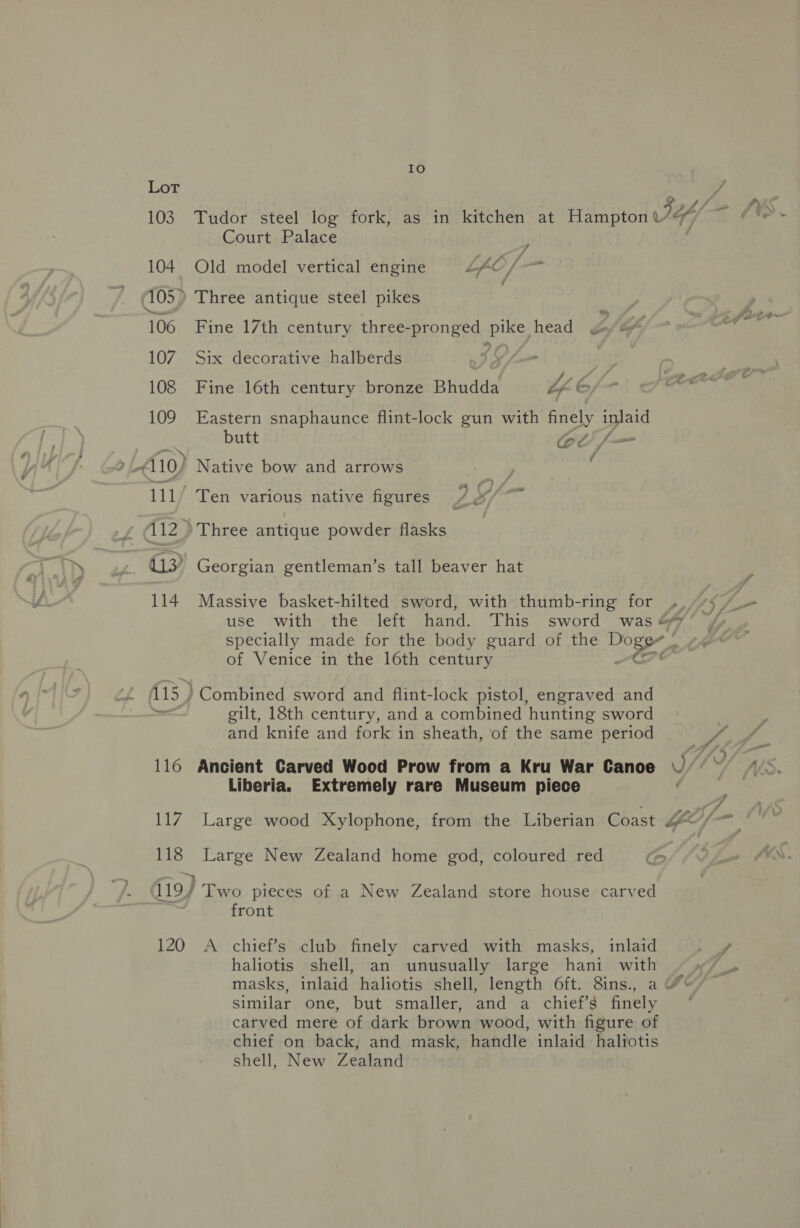 10
Lot
103 Tudor steel log fork, as in kitchen at Hampton
Court Palace
104 Old model vertical engine
105 Three antique steel pikes
106 Fine 17th century three-pronged pike head
107 Six decorative halberds
108 Fine 16th century bronze Bhudda
109 Eastern snaphaunce flint-lock gun with finely inlaid
butt
110 Native bow and arrows
111 Ten various native figures
112 Three antique powder flasks
113 Georgian gentleman's tall beaver hat
114 Massive basket-hilted sword, with thumb-ring for
use with the left hand. This sword was
specially made for the body guard of the Doge
of Venice in the 16th century
115 Combined sword and flint-lock pistol, engraved and
gilt, 18th century, and a combined hunting sword
and knife and fork in sheath, of the same period
116 Ancient Carved Wood Prow from a Kru War Canoe
Liberia. Extremely rare Museum piece
117 Large wood Xylophone, from the Liberian Coast
118 Large New Zealand home god, coloured red
119 Two pieces of a New Zealand store house carved
front
120 A chief's club finely carved with masks, inlaid
haliotis shell, an unusually large hani with
masks, inlaid haliotis shell, length 6ft. 8ins., a
similar one, but smaller, and a chief's finely
carved mere of dark brown wood, with figure of
chief on back, and mask, handle inlaid haliotis
shell, New Zealand